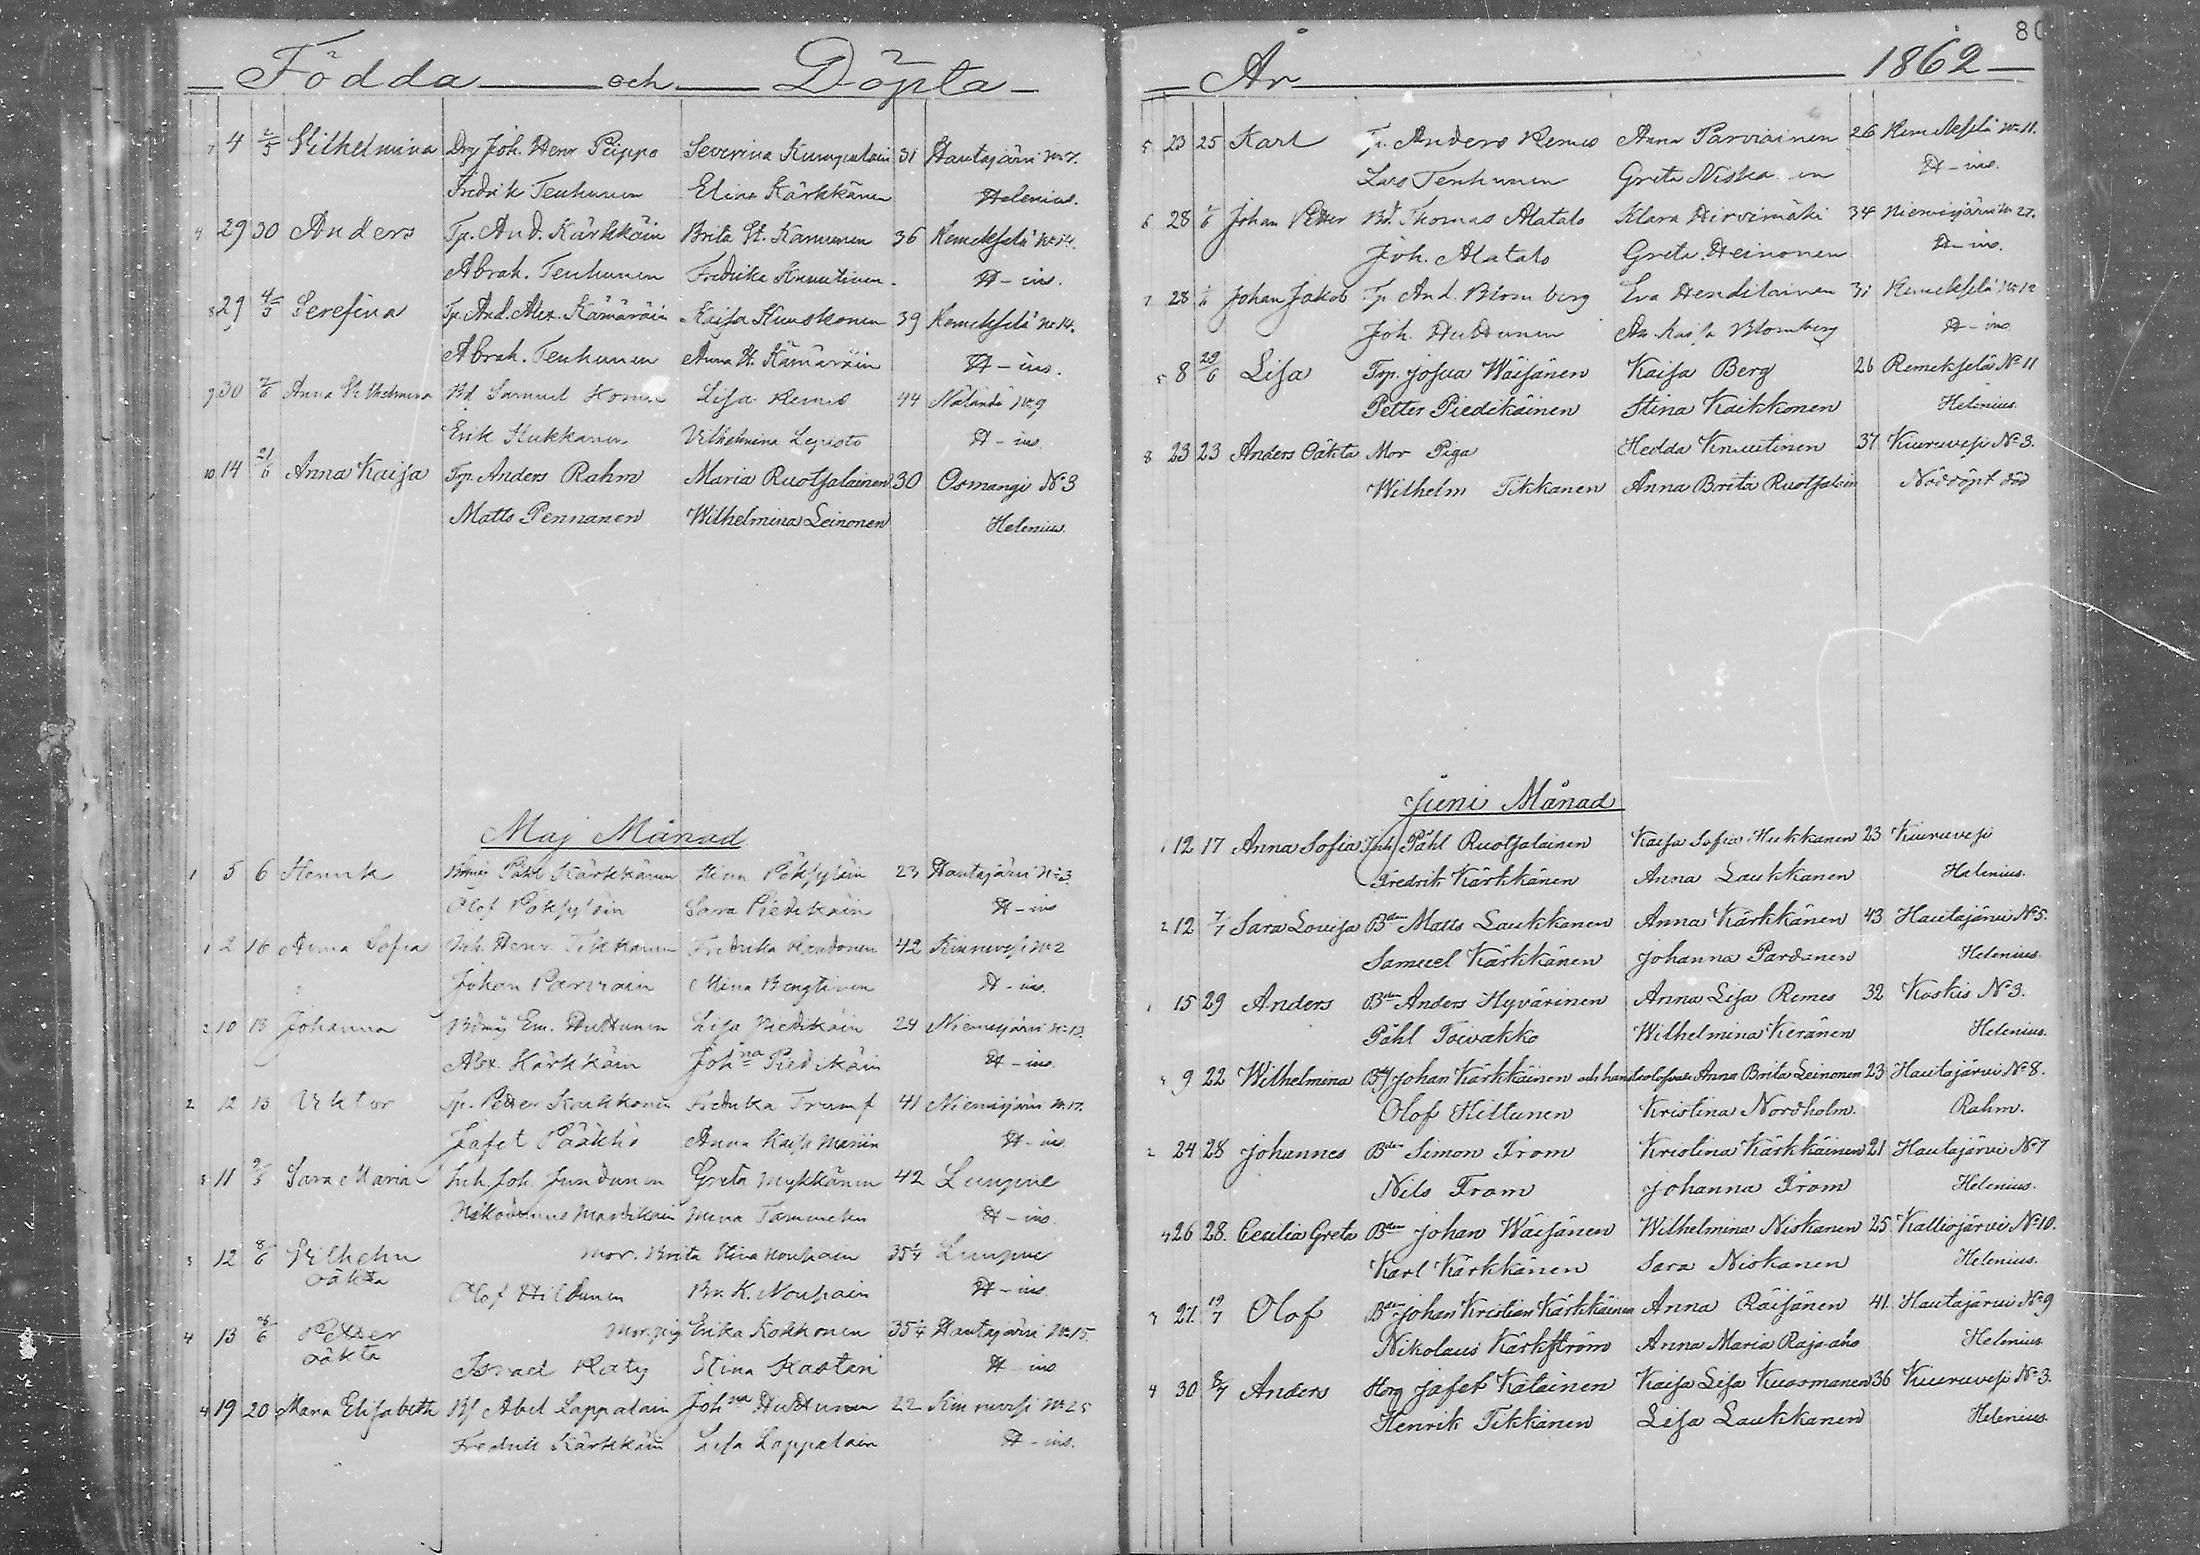 Födda och Döpta
7 4 2/5 Vilhelmina Drg Joh. Henr Piippo Severina Kumpulain 31 Hautajärvi No 7.
Fredrik Tenhunen Elina Kärkkänen Helenius.
4 29 30 Anders Tp. And. Kärkkäin Brita St. Kanunen 36 Remekselä No 14.
Abrah. Tenhunen Fredrika Knuutinen. H-ius.
8 29 4/5 Serefina Tp. And. Alex. Kämäräin Kaisa Kuuskonen 39 Remekselä No 14.
Abrah. Tenhunen Anna St. Kämäräin H-ius.
9 30 7/6 Anna Vilhelmina Bd. Samuel Lisa Remes 44 No 9
Erik Hukkanen Vilhelmina Lepistö H-ius
10 14 21/6 Anna Kaisa Trp. Anders Rahm Maria Ruotsalainen 30 Osmangi No 3
Matts Pennanen Wilhelmina Leinonen Helenius.
Maj Månad
1 5 6 Henrik Påhl Kärkkänen Stina Pöksyläin 23 Hautajärvi No 3.
Olof Pöksyläin Sara Piedikäin H-ius
1 2 16 Anna Sofia Inh. Henr. Tikkanen Fredrika 42 No 2
Johan Parviain Mina Bengtinen H-ius.
2 10 13 Johanna Em. Huttunen Lisa Piedikäin 24 Niemisjärvi No 13.
Alex. Kärkkäin Johna Piedikäin H-ius.
2 12 13 Viktor Tp. Petter Kaikkonen Fredrika Trumf 41 Niemisjärvi No 17.
Jafet Pääkkö Anna Kaisa H-ius
3 11 9/5 Sara Maria Inh. Joh. Juntunen Greta Mykkänen 42
Mina Tammelin H-ius.
3 12 8/6 Vilhelm oäkta mor. Brita Stina Nousiain 35 1/4
Olof Hiltunen Br. K. Nousiain H-ius.
4 13 8/6 Petter oäkta Mor. pig Erika Kokkonen 35 1/4 Hautajärvi No 15.
Israel Räty Stina Kasteni H-ius
4 19 20 Maria Elisabeth Abel Lappalain Johna Huttunen 22 No 25
Fredrik Kärkkäin Lisa Lappalain H-ius.
År 1862
80
5 23 25 Karl Tp. Anders Remes Anna Parviainen 26 Remekselä No 11.
Lars Tenhunen Greta H-ius.
6 28 1/6 Johan Petter Bd. Thomas Alatalo Klara Hirvimäki 34 Niemisjärvi No 27.
Joh. Alatalo Greta Heinonen H-ius.
7 28 1/6 Johan Jakob Tp And. Blomberg Eva 31 Remekselä No 12
Joh. Huttunen An. Kaisa Blomberg H-ius
5 8 29/6 Lisa Trp. Josua Wäisänen Kaisa Berg 26 Remekselä No 11
Petter Piedikäinen Stina Kaikkonen Helenius.
8 23 23 Anders Oäkta Mor Piga Hedda Knuutinen 37 Kuuruvesi No 3.
Wilhelm Tikkanen Anna Brita Ruotsalain Nöddöpt död
Juni Månad
1 12 17 Anna Sofia Inh. Påhl Ruotsalainen Kaisa Sofia Hukkanen 23 Kuuruvesi
Fredrik Kärkkänen Anna Laukkanen Helenius.
2 12 7/7 Sara Lovisa Bden Matts Laukkanen Anna Kärkkänen 43 Hautajärvi No 5.
Samuel Kärkkänen Johanna Pardanen Helenius.
1 15 29 Anders Bden Anders Hyvärinen Anna Lisa Remes 32 Koskis No 3.
Påhl Toivakko Wilhelmina Keränen Helenius.
3 9 22 Wilhelmina Johan Kärkkäinen och Anna Brita Leinonen 23 Hautajärvi No 8.
Olof Hiltunen Kristina Nordholm. Rahm.
2 24 28 Johannes Bden Simon From Kristina Kärkkäinen 21 Hautajärvi No 7
Nils From Johanna From Helenius.
4 26 28. Cecilia Greta Bden Johan Wäisänen Wilhelmina Niskanen 25 Kalliojärvi No 10.
Karl Kärkkänen Sara Niskanen Helenius.
3 27. 19/7 Olof Bden Johan Kristian Kärkkäinen Anna Räisänen 41. Hautajärvi No 9
Nikolaus Kärkström Anna Maria Rajaaho Helenius
4 30 8/7 Anders Horg Jafet Katainen Kaisa Lisa Kuosmanen 36 Kuuruvesi No 3.
Henrik Tikkanen Lisa Laukkanen Helenius.